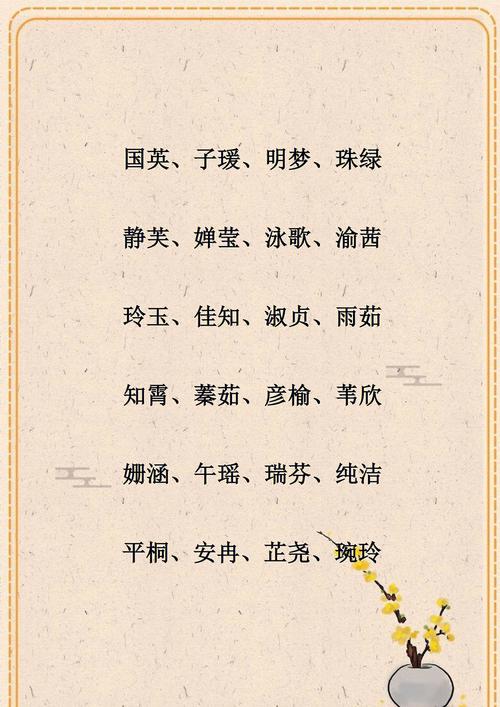 国英、子瑗、明梦、珠绿
静芙、婵莹、泳歌、渝茜
玲玉、佳知、淑贞、雨茹
知霄、蓁茹、彦榆、苇欣
姗涵、午瑶、瑞芬、纯洁
平桐、安冉、芷尧、琬玲